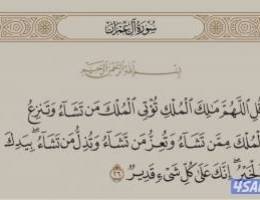 سُورَةُ آلِ عِمْرَانَ
بِسْمِ اللَّهِ الرَّحْمَٰنِ الرَّحِيمِ
قُلِ اللَّهُمَّ مَالِكَ الْمُلْكِ تُؤْتِي الْمُلْكَ مَن تَشَاءُ وَتَنزِعُ
الْمُلْكَ مِمَّن تَشَاءُ وَتُعِزُّ مَن تَشَاءُ وَتُذِلُّ مَن تَشَاءُ ۖ بِيَدِكَ
الْخَيْرُ ۖ إِنَّكَ عَلَىٰ كُلِّ شَيْءٍ قَدِيرٌ ٢٦